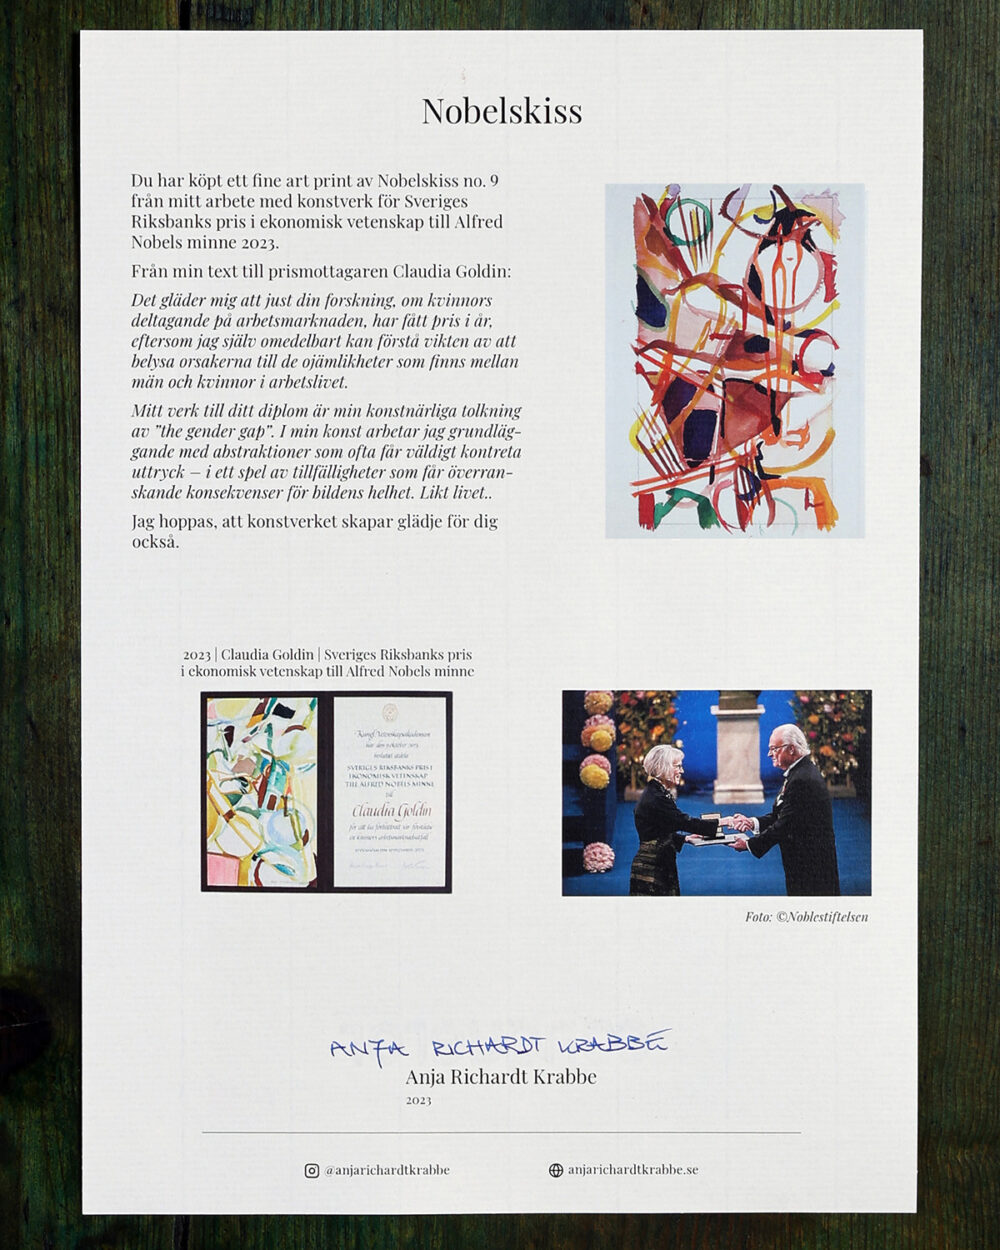 Nobelskiss
Du har köpt ett fine art print av Nobelskiss no. 9
från mitt arbete med konstverk för Sveriges
Riksbanks pris i ekonomisk vetenskap till Alfred
Nobels minne 2023.
Från min text till prismottagaren Claudia Goldin:
Det gläder mig att just din forskning, om kvinnors
deltagande på arbetsmarknaden, har fått pris i år,
eftersom jag själv omedelbart kan förstå vikten av att
belysa orsakerna till de ojämlikheter som finns mellan
män och kvinnor i arbetslivet.
Mitt verk till ditt diplom är min konstnärliga tolkning
av ”the gender gap”. I min konst arbetar jag grundläg-
gande med abstraktioner som ofta får väldigt kontreta
uttryck – i ett spel av tillfälligheter som får överran-
skande konsekvenser för bildens helhet. Likt livet..
Jag hoppas, att konstverket skapar glädje för dig
också.
2023 | Claudia Goldin | Sveriges Riksbanks pris
i ekonomisk vetenskap till Alfred Nobels minne
Kungl. Vetenskapsakademien
har den 9 oktober 2023
beslutat utdela
SVERIGES RIKSBANKS PRIS I
EKONOMISK VETENSKAP
TILL ALFRED NOBELS MINNE
till
Claudia Goldin
för att ha förbättrat vår förståelse
av kvinnors arbetsmarknadsutfall
Foto: ©Noblestiftelsen
ANJA RICHARDT KRABBE
Anja Richardt Krabbe
2023
@anjarichardtkrabbe
anjarichardtkrabbe.se